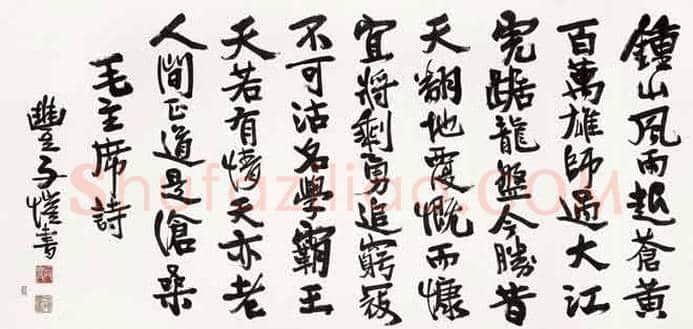 鍾山風雨起蒼黃
百萬雄師過大江
虎踞龍盤今勝昔
天翻地覆慨而慷
宜將剩勇追窮寇
不可沽名學霸王
天若有情天亦老
人間正道是滄桑
毛主席詩
豐子愷書
Shufaziliao.COM